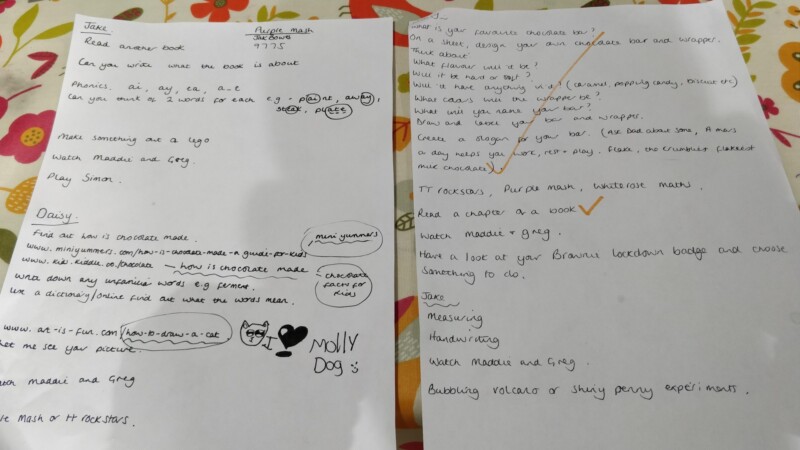 Jake
Purple mash
JakBowe
9775
Read another book
Can you write what the book is about
Phonics. ai, ay, ea, a-e
Can you think of 2 words for each e.g - paint, away,
steak, plate
Make something out a lego
Watch Maddie and Greg.
Play Simon.
Daisy.
Find out how is chocolate made.
mini yummers
www.miniyummers.com/how-is-chocolate-made-a-guide-for-kids
www.kids.kiddle.co/chocolate - how is chocolate made
chocolate facts for kids
write down any unfamiliar words e.g ferment.
Use a dictionary/online find out what the words mean.
www.art-is-fun.com/how-to-draw-a-cat
I
MOLLY
DOG
let me see your picture.
Watch maddie and Greg
Mash or TT rockstars.
What is your favourite chocolate bar?
On a sheet, design your own chocolate bar and wrapper.
Think about
What flavour will it be?
Will it be hard or soft?
Will it have anything in it? (caramel, popping candy, biscuit etc)
What colours will the wrapper be?
What will you name your bar?
Draw and label your bar and wrapper.
Create a slogan for your bar. (Ask Dad about some, A mars
a day helps you work, rest + play. Flake, the crumbliest flakiest
milk chocolate)
TT rockstars, Purple mash, Whiterose maths.
Read a chapter of a book
Watch Maddie + greg.
Have a look at your Brownie lockdown badge and choose
something to do.
Jake
Measuring
Handwriting
Watch Maddie and Greg.
Bubbling volcano or shiny penny experiments.